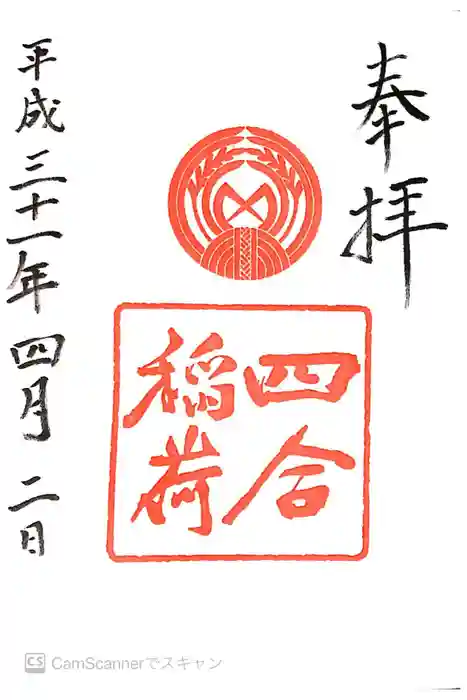 奉拝
四合
稲荷
平成三十一年四月二日
CS CamScannerでスキャン